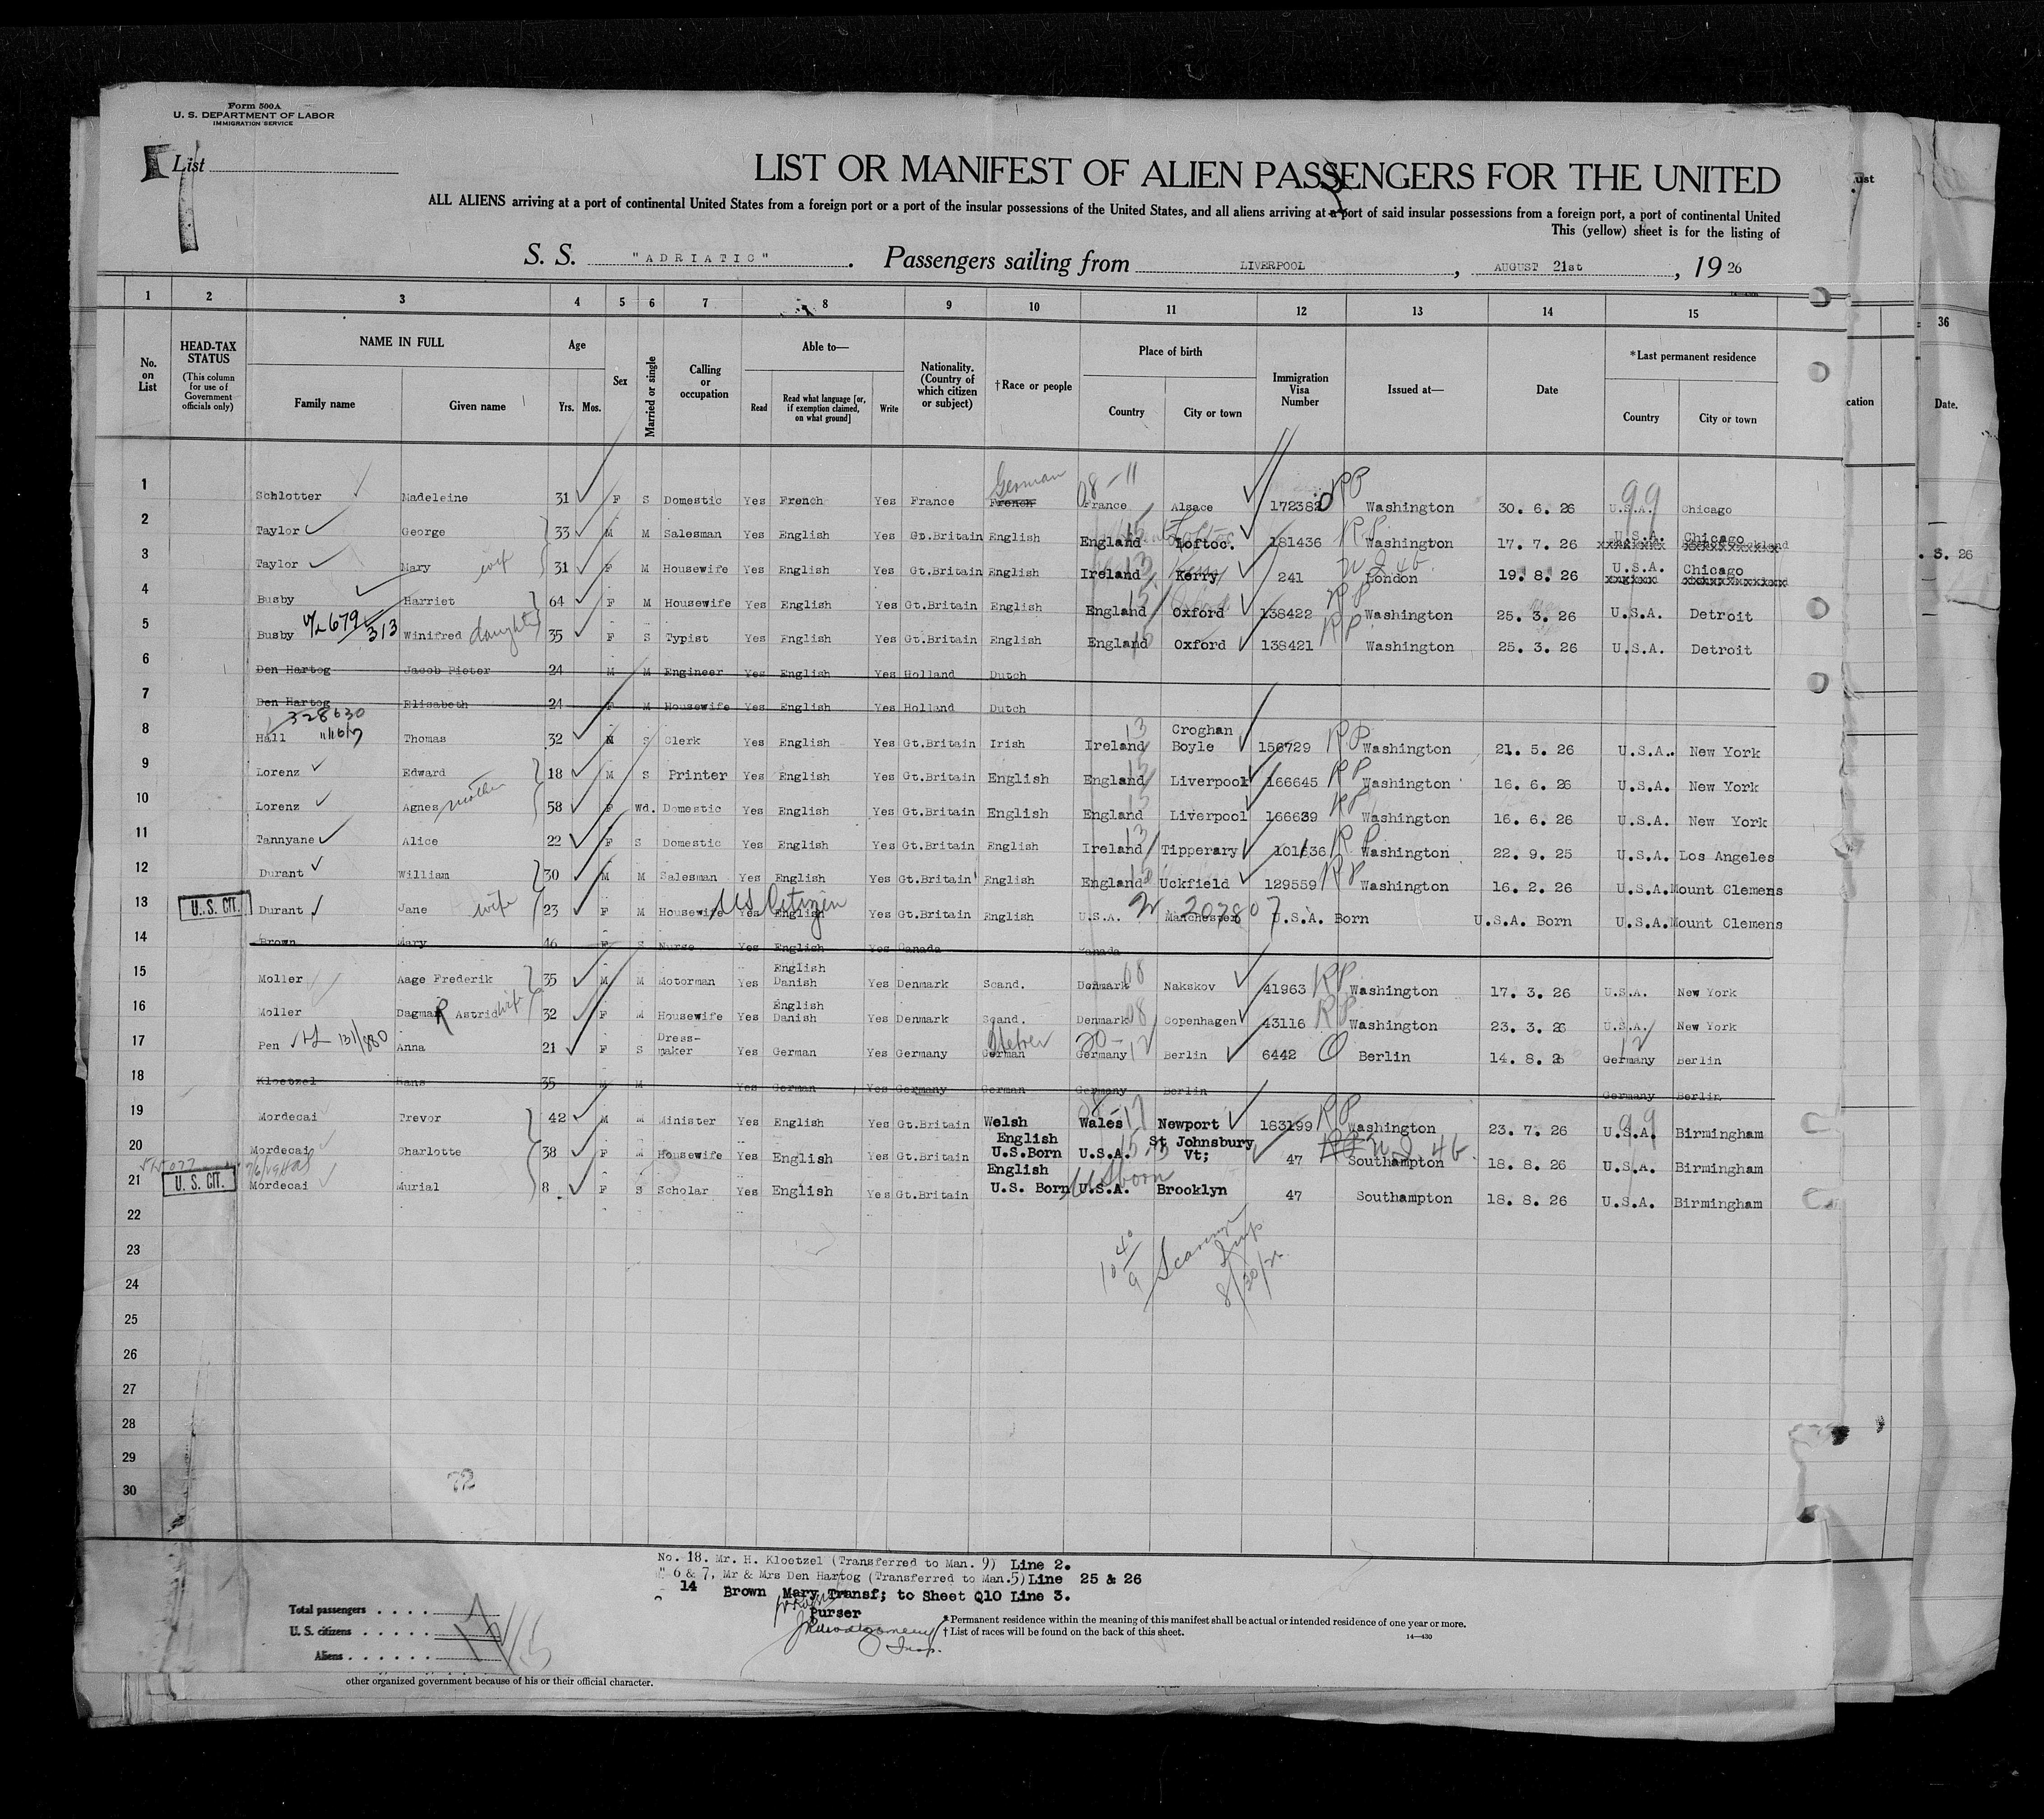 Form 500A
U. S. DEPARTMENT OF LABOR
IMMIGRATION SERVICE
List
LIST OR MANIFEST OF ALIEN PASSENGERS FOR THE UNITED
ALL ALIENS arriving at a port of continental United States from a foreign port or a port of the insular possessions of the United States, and all aliens arriving at a port of said insular possessions from a foreign port, a port of continental United
This (yellow) sheet is for the listing of
S. S. "ADRIATIC". Passengers sailing from LIVERPOOL, AUGUST 21st, 19 26
1 2 3 4 5 6 7 8 9 10 11 12 13 14 15 36
No. on List
HEAD-TAX STATUS
(This column for use of Government officials only)
NAME IN FULL
Family name Given name
Age
Yrs. Mos.
Sex
Married or single
Calling or occupation
Able to—
Read
Read what language [or, if exemption claimed, on what ground]
Write
Nationality. (Country of which citizen or subject)
†Race or people
Place of birth
Country City or town
Immigration Visa Number
Issued at—
Date
*Last permanent residence
Country City or town
Date.
1 Schlotter Madeleine 31 F S Domestic Yes French Yes France French German 08-11 France Alsace 172382 RP Washington 30. 6. 26 U.S.A. 99 Chicago
2 Taylor George 33 M M Salesman Yes English Yes Gt.Britain English England 15 Loftoc. 181436 RP Washington 17. 7. 26 U.S.A. Chicago
3 Taylor Mary wife 31 F M Housewife Yes English Yes Gt.Britain English Ireland 13 Kerry 241 London 19. 8. 26 U.S.A. Chicago
4 Busby Harriet 64 F M Housewife Yes English Yes Gt.Britain English England 15 Oxford 138422 RP Washington 25. 3. 26 U.S.A. Detroit
5 Busby 679/313 Winifred daughter 35 F S Typist Yes English Yes Gt.Britain English England 15 Oxford 138421 RP Washington 25. 3. 26 U.S.A. Detroit
6 Den Hartog Jacob Pieter 24 M M Engineer Yes English Yes Holland Dutch
7 Den Hartog Elisabeth 24 F M Housewife Yes English Yes Holland Dutch
328630
8 Hall Thomas 32 M S Clerk Yes English Yes Gt.Britain Irish Ireland 13 Croghan Boyle 156729 RP Washington 21. 5. 26 U.S.A. New York
9 Lorenz Edward 18 M S Printer Yes English Yes Gt.Britain English England 15 Liverpool 166645 RP Washington 16. 6. 26 U.S.A. New York
10 Lorenz Agnes mother 58 F Wd. Domestic Yes English Yes Gt.Britain English England 15 Liverpool 166639 RP Washington 16. 6. 26 U.S.A. New York
11 Tannyane Alice 22 F S Domestic Yes English Yes Gt.Britain English Ireland 13 Tipperary 101636 RP Washington 22. 9. 25 U.S.A. Los Angeles
12 Durant William 30 M M Salesman Yes English Yes Gt.Britain English England 15 Uckfield 129559 RP Washington 16. 2. 26 U.S.A. Mount Clemens
13 U. S. CIT. Durant Jane wife 23 F M Housewife US Citizen Yes English Yes Gt.Britain English U.S.A. Manchester 203807 U.S.A. Born U.S.A. Born U.S.A. Mount Clemens
14 Brown Mary 46 F S Nurse Yes English Yes Canada Kanada
15 Moller Aage Frederik 35 M M Motorman Yes English Danish Yes Denmark Scand. Denmark 08 Nakskov 41963 RP Washington 17. 3. 26 U.S.A. New York
16 Moller Dagmar R Astrid wife 32 F M Housewife Yes English Danish Yes Denmark Scand. Denmark 08 Copenhagen 43116 RP Washington 23. 3. 26 U.S.A. New York
17 Pen 131/880 Anna 21 F S Dress-maker Yes German Yes Germany German Hebrew 20-12 Germany Berlin 6442 O Berlin 14. 8. 26 Germany 12 Berlin
18 Kloetzel Hans 35 M M Yes German Yes Germany German Germany Berlin Germany Berlin
19 Mordecai Trevor 42 M M Minister Yes English Yes Gt.Britain Welsh Wales 17 Newport 183199 RP Washington 23. 7. 26 U.S.A. 99 Birmingham
20 Mordecai Charlotte 38 F M Housewife Yes English Yes Gt.Britain English U.S.Born U.S.A. St Johnsbury Vt; 47 Southampton 18. 8. 26 U.S.A. Birmingham
21 U. S. CIT. Mordecai Murial 8 F S Scholar Yes English Yes Gt.Britain English U.S. Born US born U.S.A. Brooklyn 47 Southampton 18. 8. 26 U.S.A. Birmingham
22
23
24
25
26
27
28
29
30
8/30/26
72
No. 18. Mr. H. Kloetzel (Transferred to Man. 9) Line 2.
" 6 & 7, Mr & Mrs Den Hartog (Transferred to Man.5) Line 25 & 26
14 Brown Mary Transf; to Sheet Q10 Line 3.
Purser
Insp.
Total passengers
U. S. citizens
Aliens
*Permanent residence within the meaning of this manifest shall be actual or intended residence of one year or more.
†List of races will be found on the back of this sheet.
14—430
other organized government because of his or their official character.